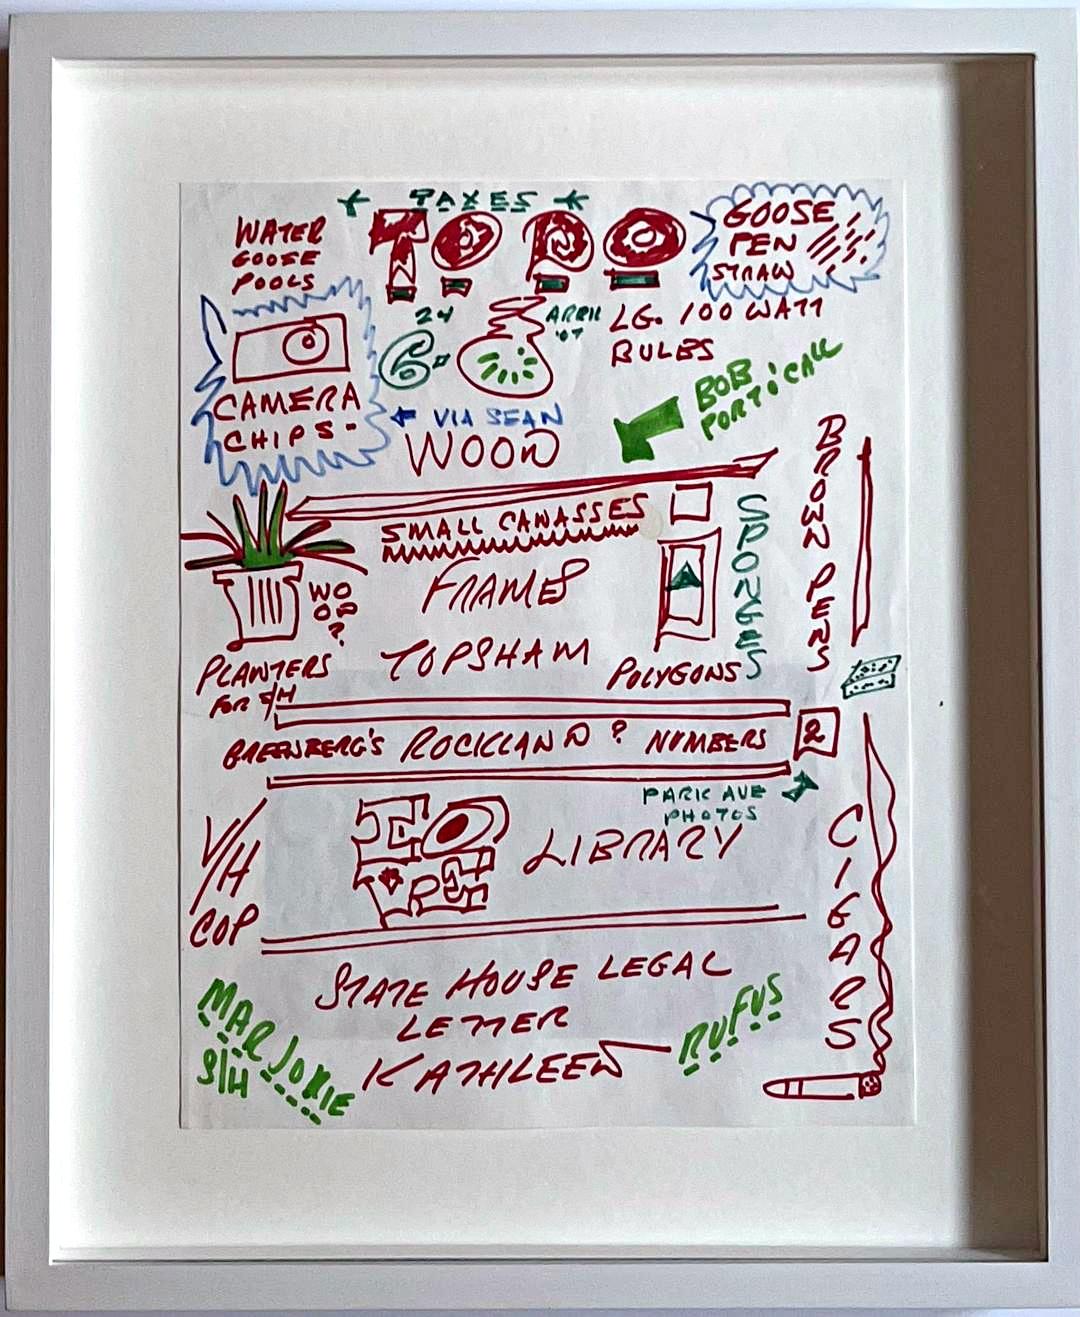 TAXES
WATER
GOOSE
POOLS
TO DO
GOOSE
PEN
STRAW
24
6"
APRIL
'07
LG. 100 WATT
BULBS
CAMERA
CHIPS-
VIA SEAN
WOOD
BOB
PORT O' CALL
BROWN PENS
SMALL CANVASSES
SPONGES
FRAMES
WO
OD
?
PLANTERS
FOR S/H
TOPSHAM
POLYGONS
GREENBERG'S ROCKLAND? NUMBERS 2
PARK AVE
PHOTOS
V/H
COP
LIBRARY
CIGARS
STATE HOUSE LEGAL
LETTER
KATHLEEN
RUFUS
MARJORIE
S/H